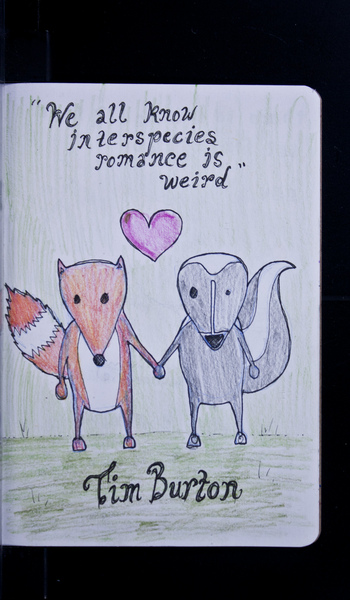 "We all know
interspecies
romance is
weird"
Tim Burton